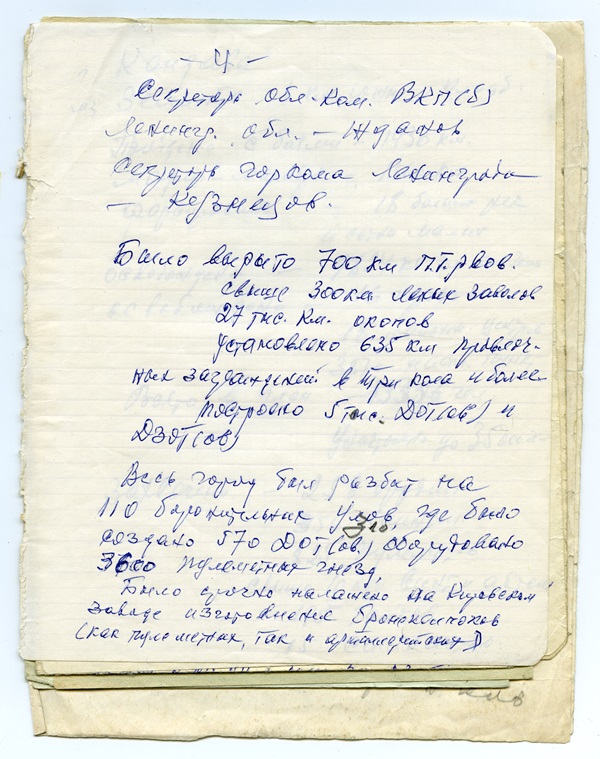 - 4 -
Секретарь обл. ком. ВКП(б)
Ленингр. обл. - Жданов
Секретарь горкома Ленинграда
- Кузнецов.
Было вырыто 700 км П.Т. рвов.
свыше 300 км лесных завалов
27 тыс. км. окопов
установлено 635 км проволоч-
ных заграждений в три кола и более
построено 5 тыс. ДОТ(ов) и
ДЗОТ(ов)
Весь город был разбит на
110 оборонительных узлов, где было
создано 570 ДОТ(ов.) оборудовано
3600 пулеметных гнезд,
Было срочно налажено на Кировском
заводе изготовление бронеколпаков
(как пулеметных, так и артиллерийских)